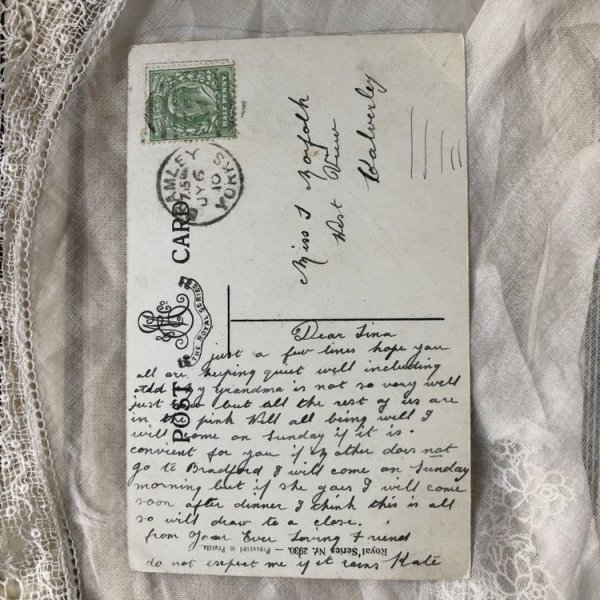 BRAMLEY
7.15
JY 6
10
YORKS
POST CARD
THE ROYAL SERIES
Miss L Norfolk
West View
Calverley
Dear Lina
just a few lines hope you
all are keeping quiet well including
Grandma is not so very well
just but all the rest of us are
in the pink Well all being well I
will come on Sunday if it is
convient for you if Mother does not
go to Bradford I will come on Sunday
morning but if she goes I will come
soon after dinner I think this is all
so will draw to a close.
from Your Ever Loving Friend
do not expect me if it rains Kate
Royal Series No. 2930. — Processed in Prussia.